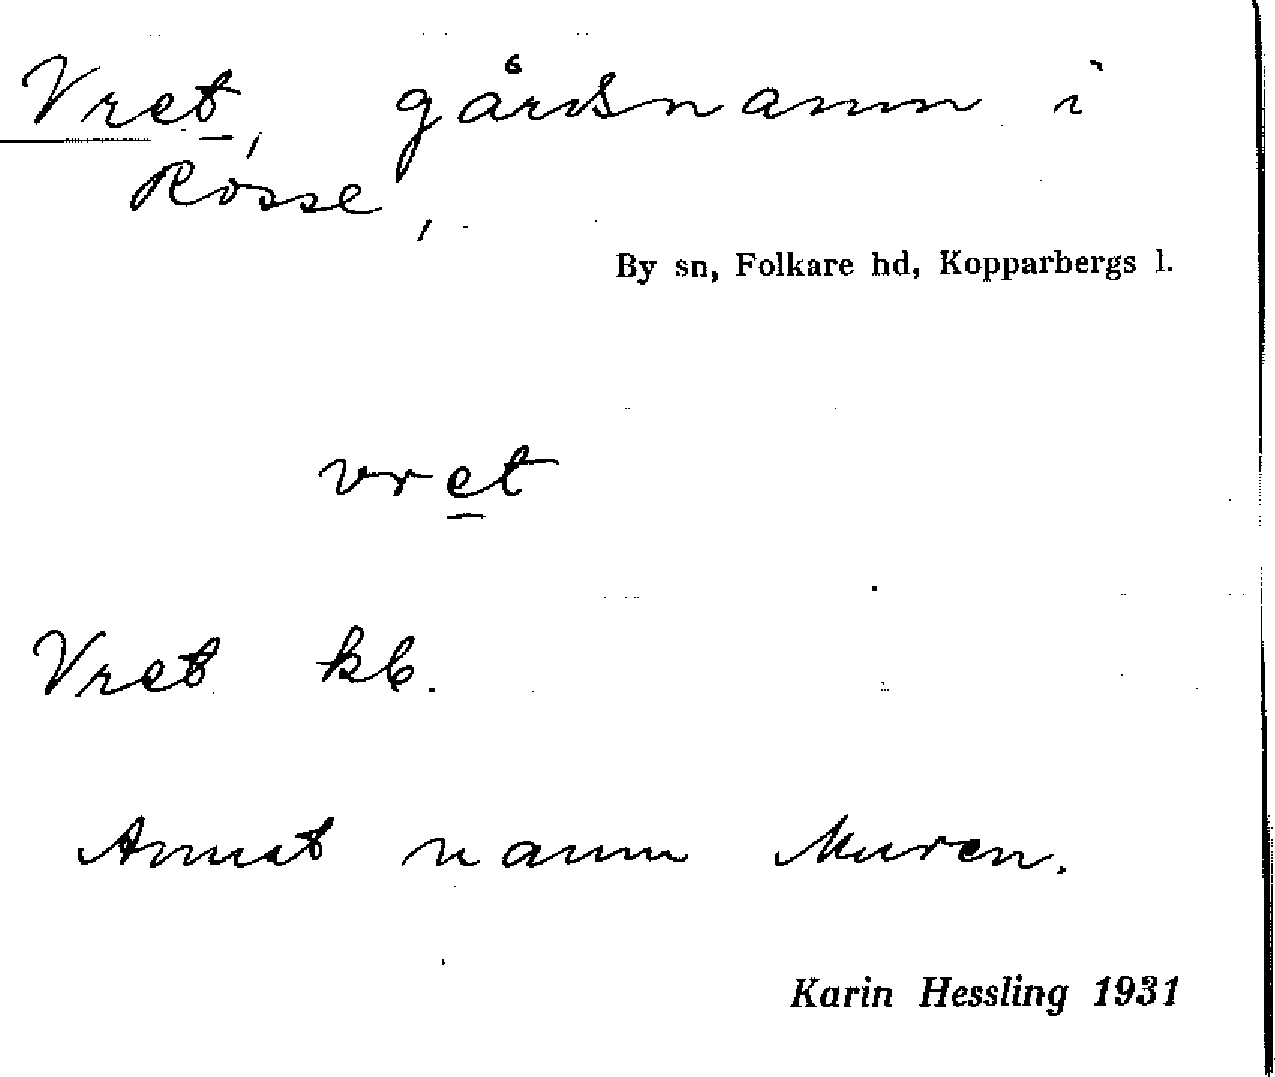 Vret, gårdsnamn i
Rosse,
By sn, Folkare hd, Kopparbergs l.
vret
Vret kb.
Annat namn Muren.
Karin Hessling 1931